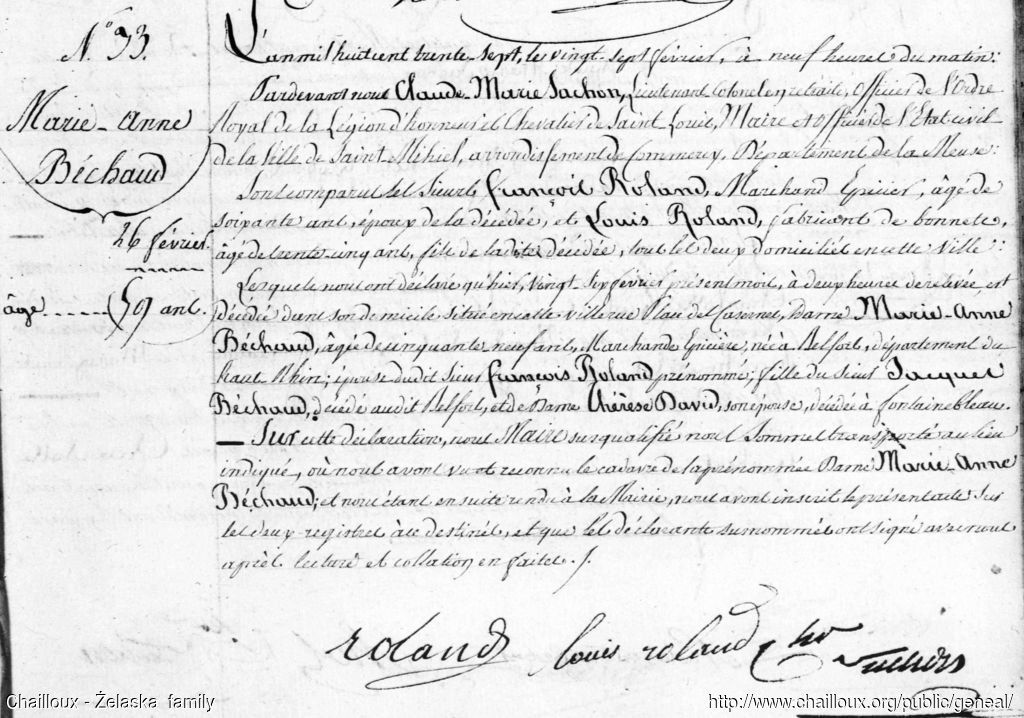 N.º 33.
Marie-Anne
Béchaud
26 février.
âge ------ 59 ans.
L'an mil huit cent trente-sept, le vingt-sept février, à neuf heures du matin:
Pardevant nous Claude-Marie Sachon, Lieutenant Colonel en retraite, Officier de l'Ordre
Royal de la Légion d'honneur et Chevalier de Saint Louis, Maire et Officier de l'Etat civil
de la Ville de Saint Mihiel, arrondissement de Commercy, Département de la Meuse:
Sont comparus les Sieurs François Roland, Marchand Epicier, âgé de
soixante ans, époux de la décédée, et Louis Roland, fabricant de bonnets,
âgé de trente-cinq ans, fils de ladite décédée, tous les deux domiciliés en cette Ville:
Lesquels nous ont déclaré qu'hier, vingt-six février présent mois, à deux heures de relevée, est
décédée dans son domicile situé en cette ville rue Place des Casernes, Dame Marie-Anne
Béchaud, âgée de cinquante-neuf ans, Marchande Epicière, née à Belfort, département du
haut-Rhin; épouse dudit Sieur François Roland prénommé; fille du Sieur Jacques
Béchaud, décédé audit Belfort, et de Dame Thérèse David, son épouse, décédée à fontainebleau.
— Sur cette déclaration, nous Maire susqualifié nous sommes transporté au lieu
indiqué, où nous avons vu et reconnu le cadavre de la prénommée Dame Marie-Anne
Béchaud; et nous étant ensuite rendu à la Mairie, nous avons inscrit le présent acte sur
les deux registres à ce destinés, et que les déclarants susnommés ont signé avec nous
après lecture et collation en faites ./.
roland louis roland
Chailloux - Żelaska family
http://www.chailloux.org/public/geneal/